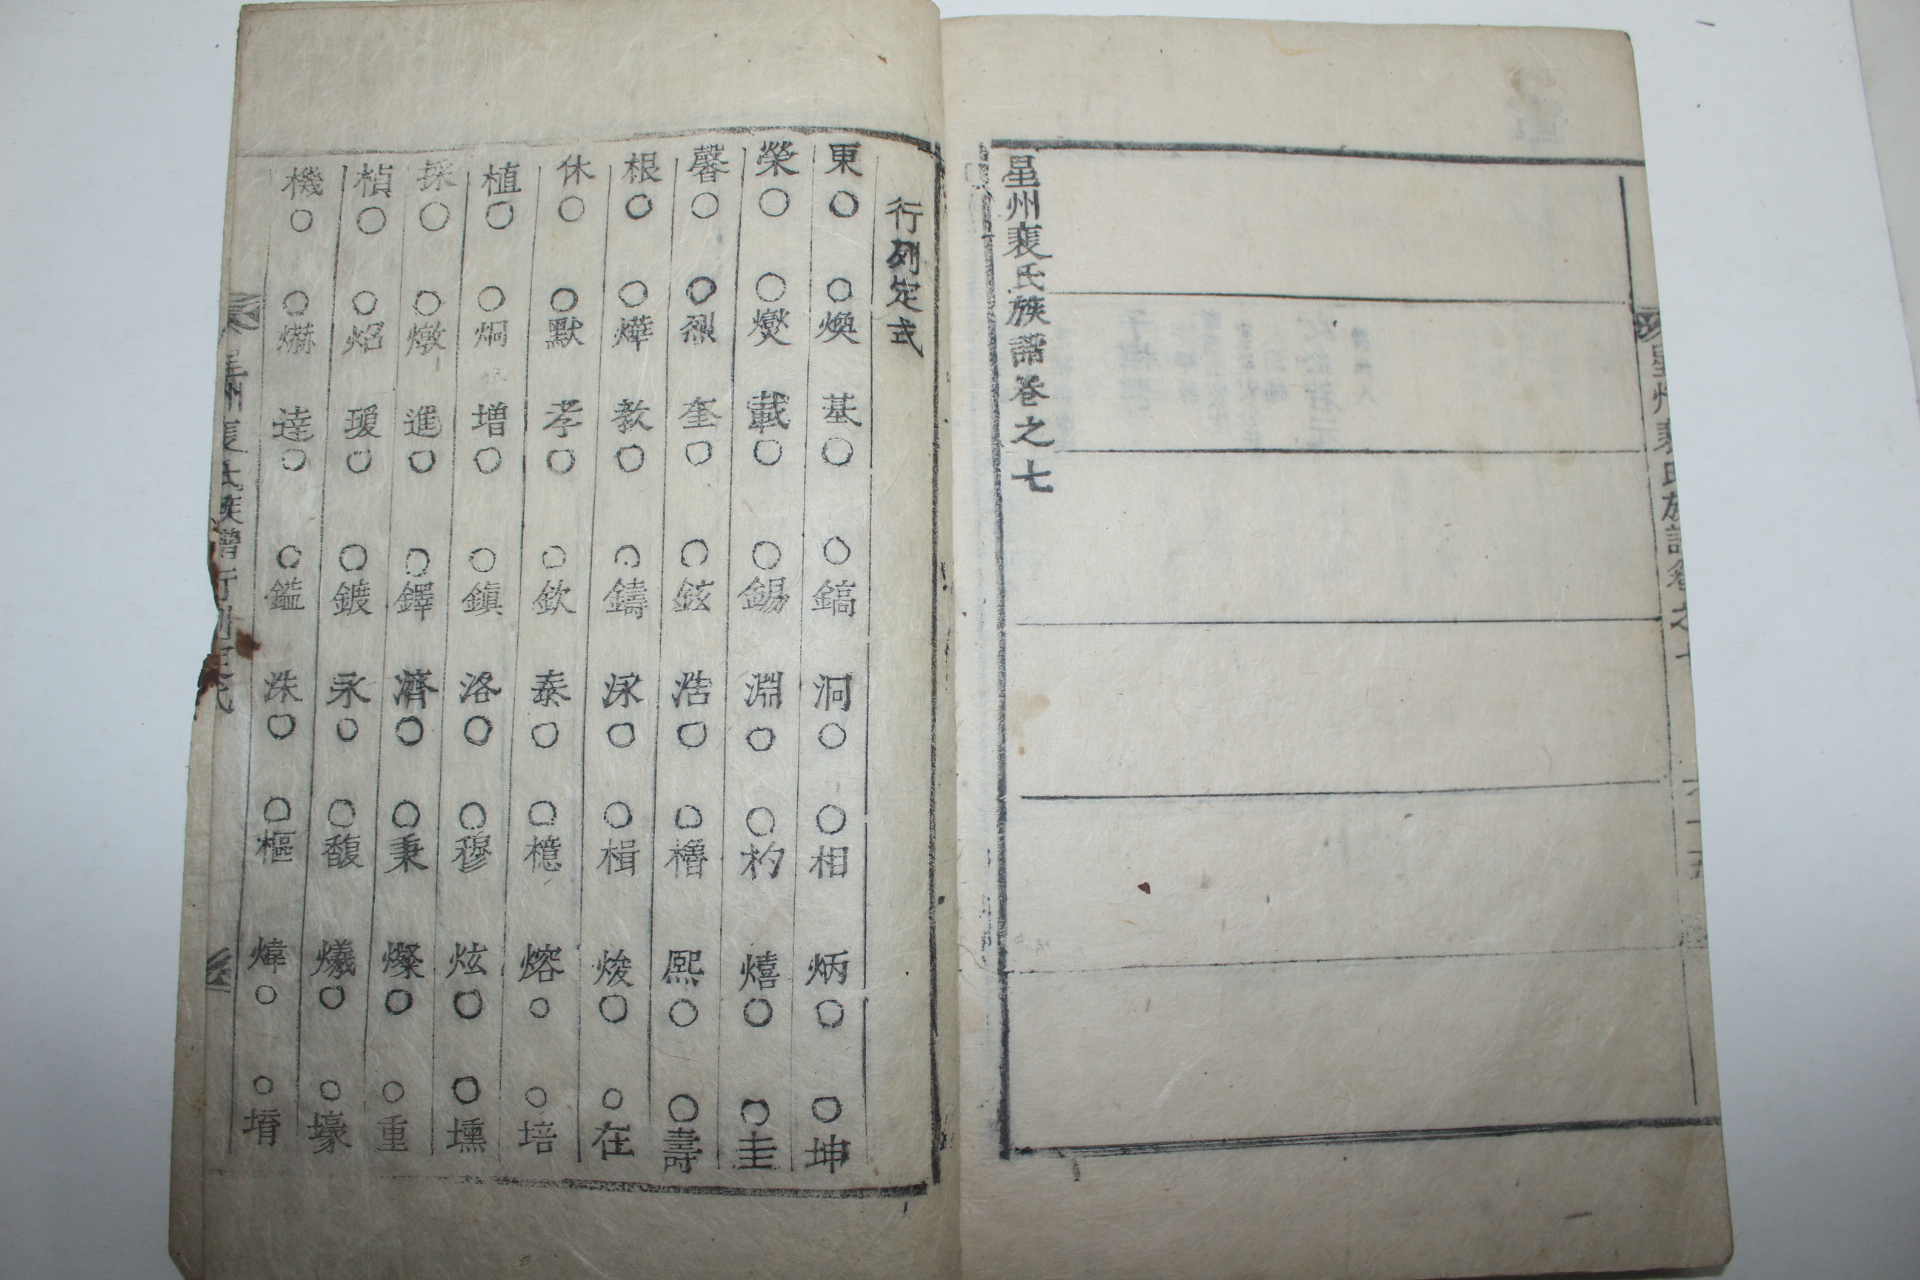 星州裵氏族譜卷之七
行列定式
東○ ○煥 基○ ○鎬 洞○ ○相 炳○ ○坤
榮○ ○燮 載○ ○錫 淵○ ○杓 熺○ ○圭
馨○ ○烈 奎○ ○鉉 浩○ ○櫓 熙○ ○壽
根○ ○燁 教○ ○鑄 泳○ ○楫 焌○ ○在
休○ ○默 孝○ ○欽 泰○ ○檍 熔○ ○培
植○ ○炯 增○ ○鎭 洛○ ○穆 炫○ ○壎
採○ ○燉 進○ ○鐸 濟○ ○秉 燦○ ○重
楨○ ○炤 瑗○ ○鍍 永○ ○馥 爔○ ○壕
機○ ○爀 達○ ○鎰 洙○ ○樞 煒○ ○堉
州裵氏族譜行列定式